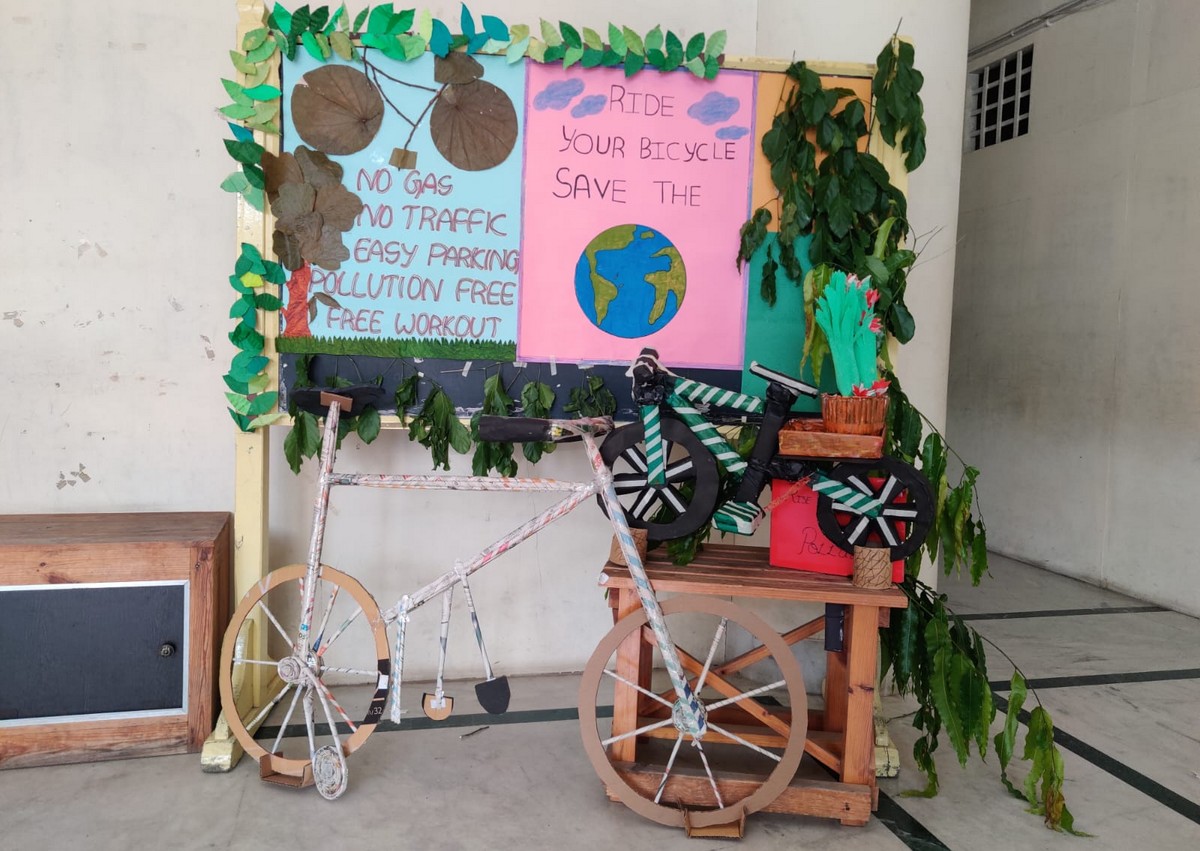 NO GAS
NO TRAFFIC
EASY PARKING
POLLUTION FREE
FREE WORKOUT
RIDE
YOUR BICYCLE
SAVE THE